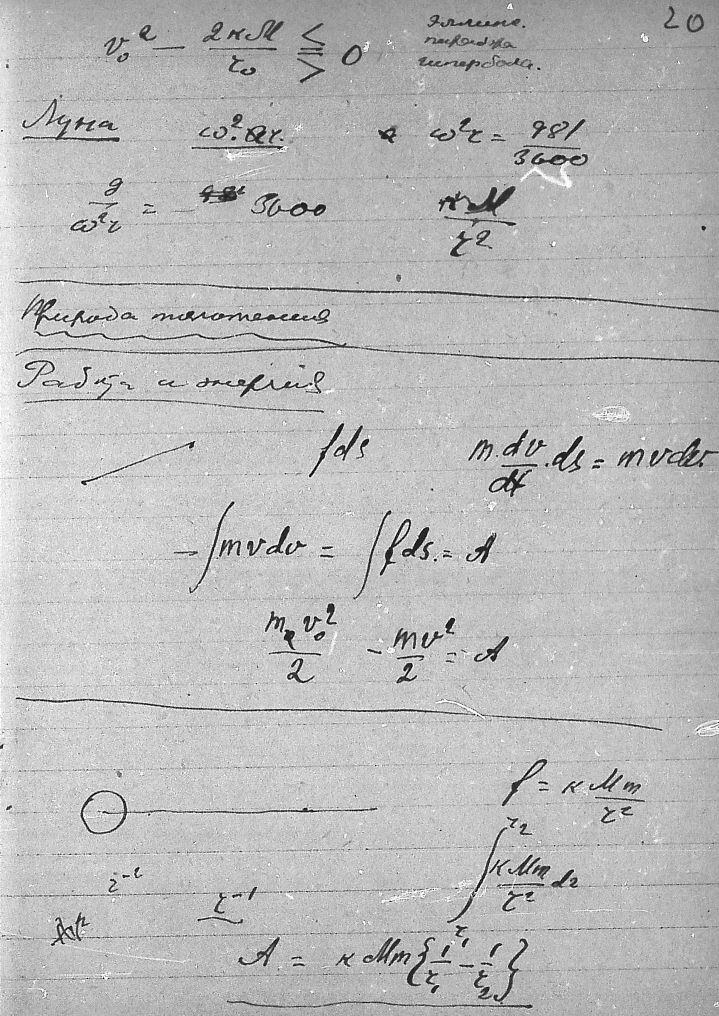 20
v₀² − 2кM/r₀ ⋚ 0
эллипс.
парабола
гипербола.
Луна ω².r. ω²r = 981/3600
g/ω²r = 3600 кM/r²
Природа тяготения
Работа и энергия
fds m.dv/dt.ds = mvdv
−∫mvdv = ∫fds. = A
mv₀²/2 − mv²/2 = A
f = к Mm/r²
r⁻² r⁻¹ ∫ кMm/r² dr
A = к Mm{1/r₁ − 1/r₂}